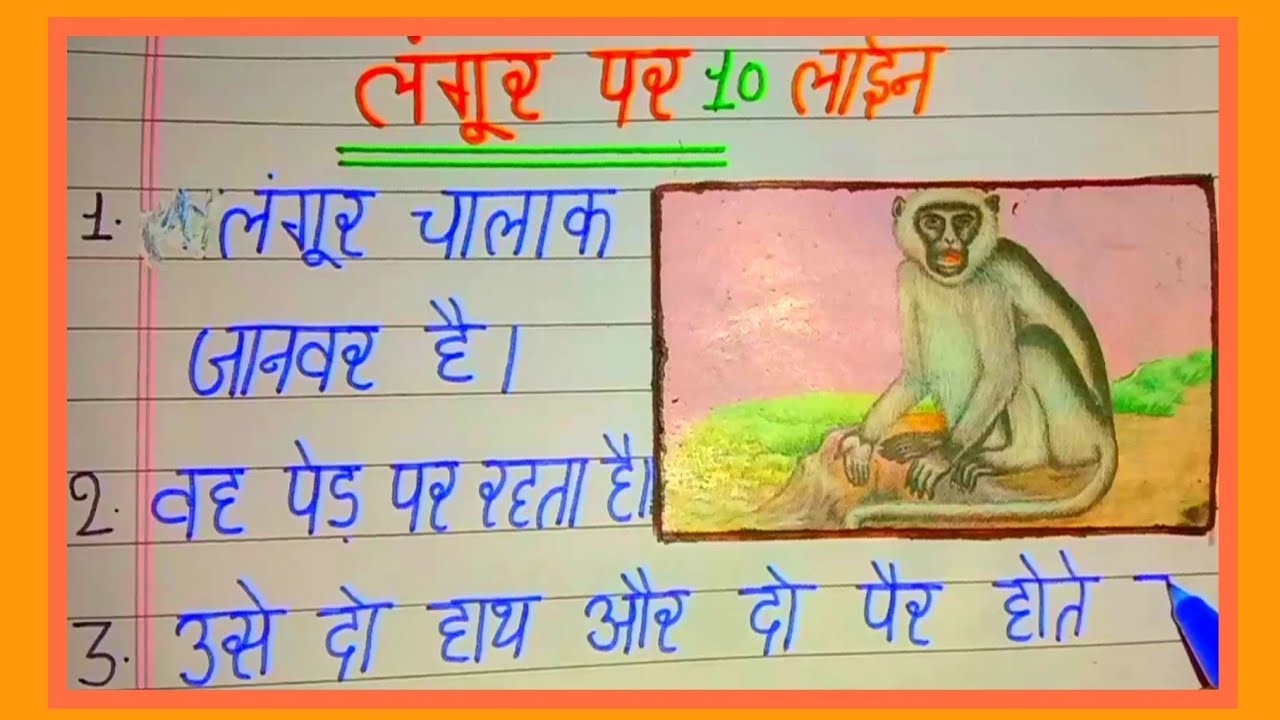 लंगूर पर 10 लाईन
1. लंगूर चालाक
जानवर है।
2. वह पेड़ पर रहता है।
3. उसे दो हाथ और दो पैर होते